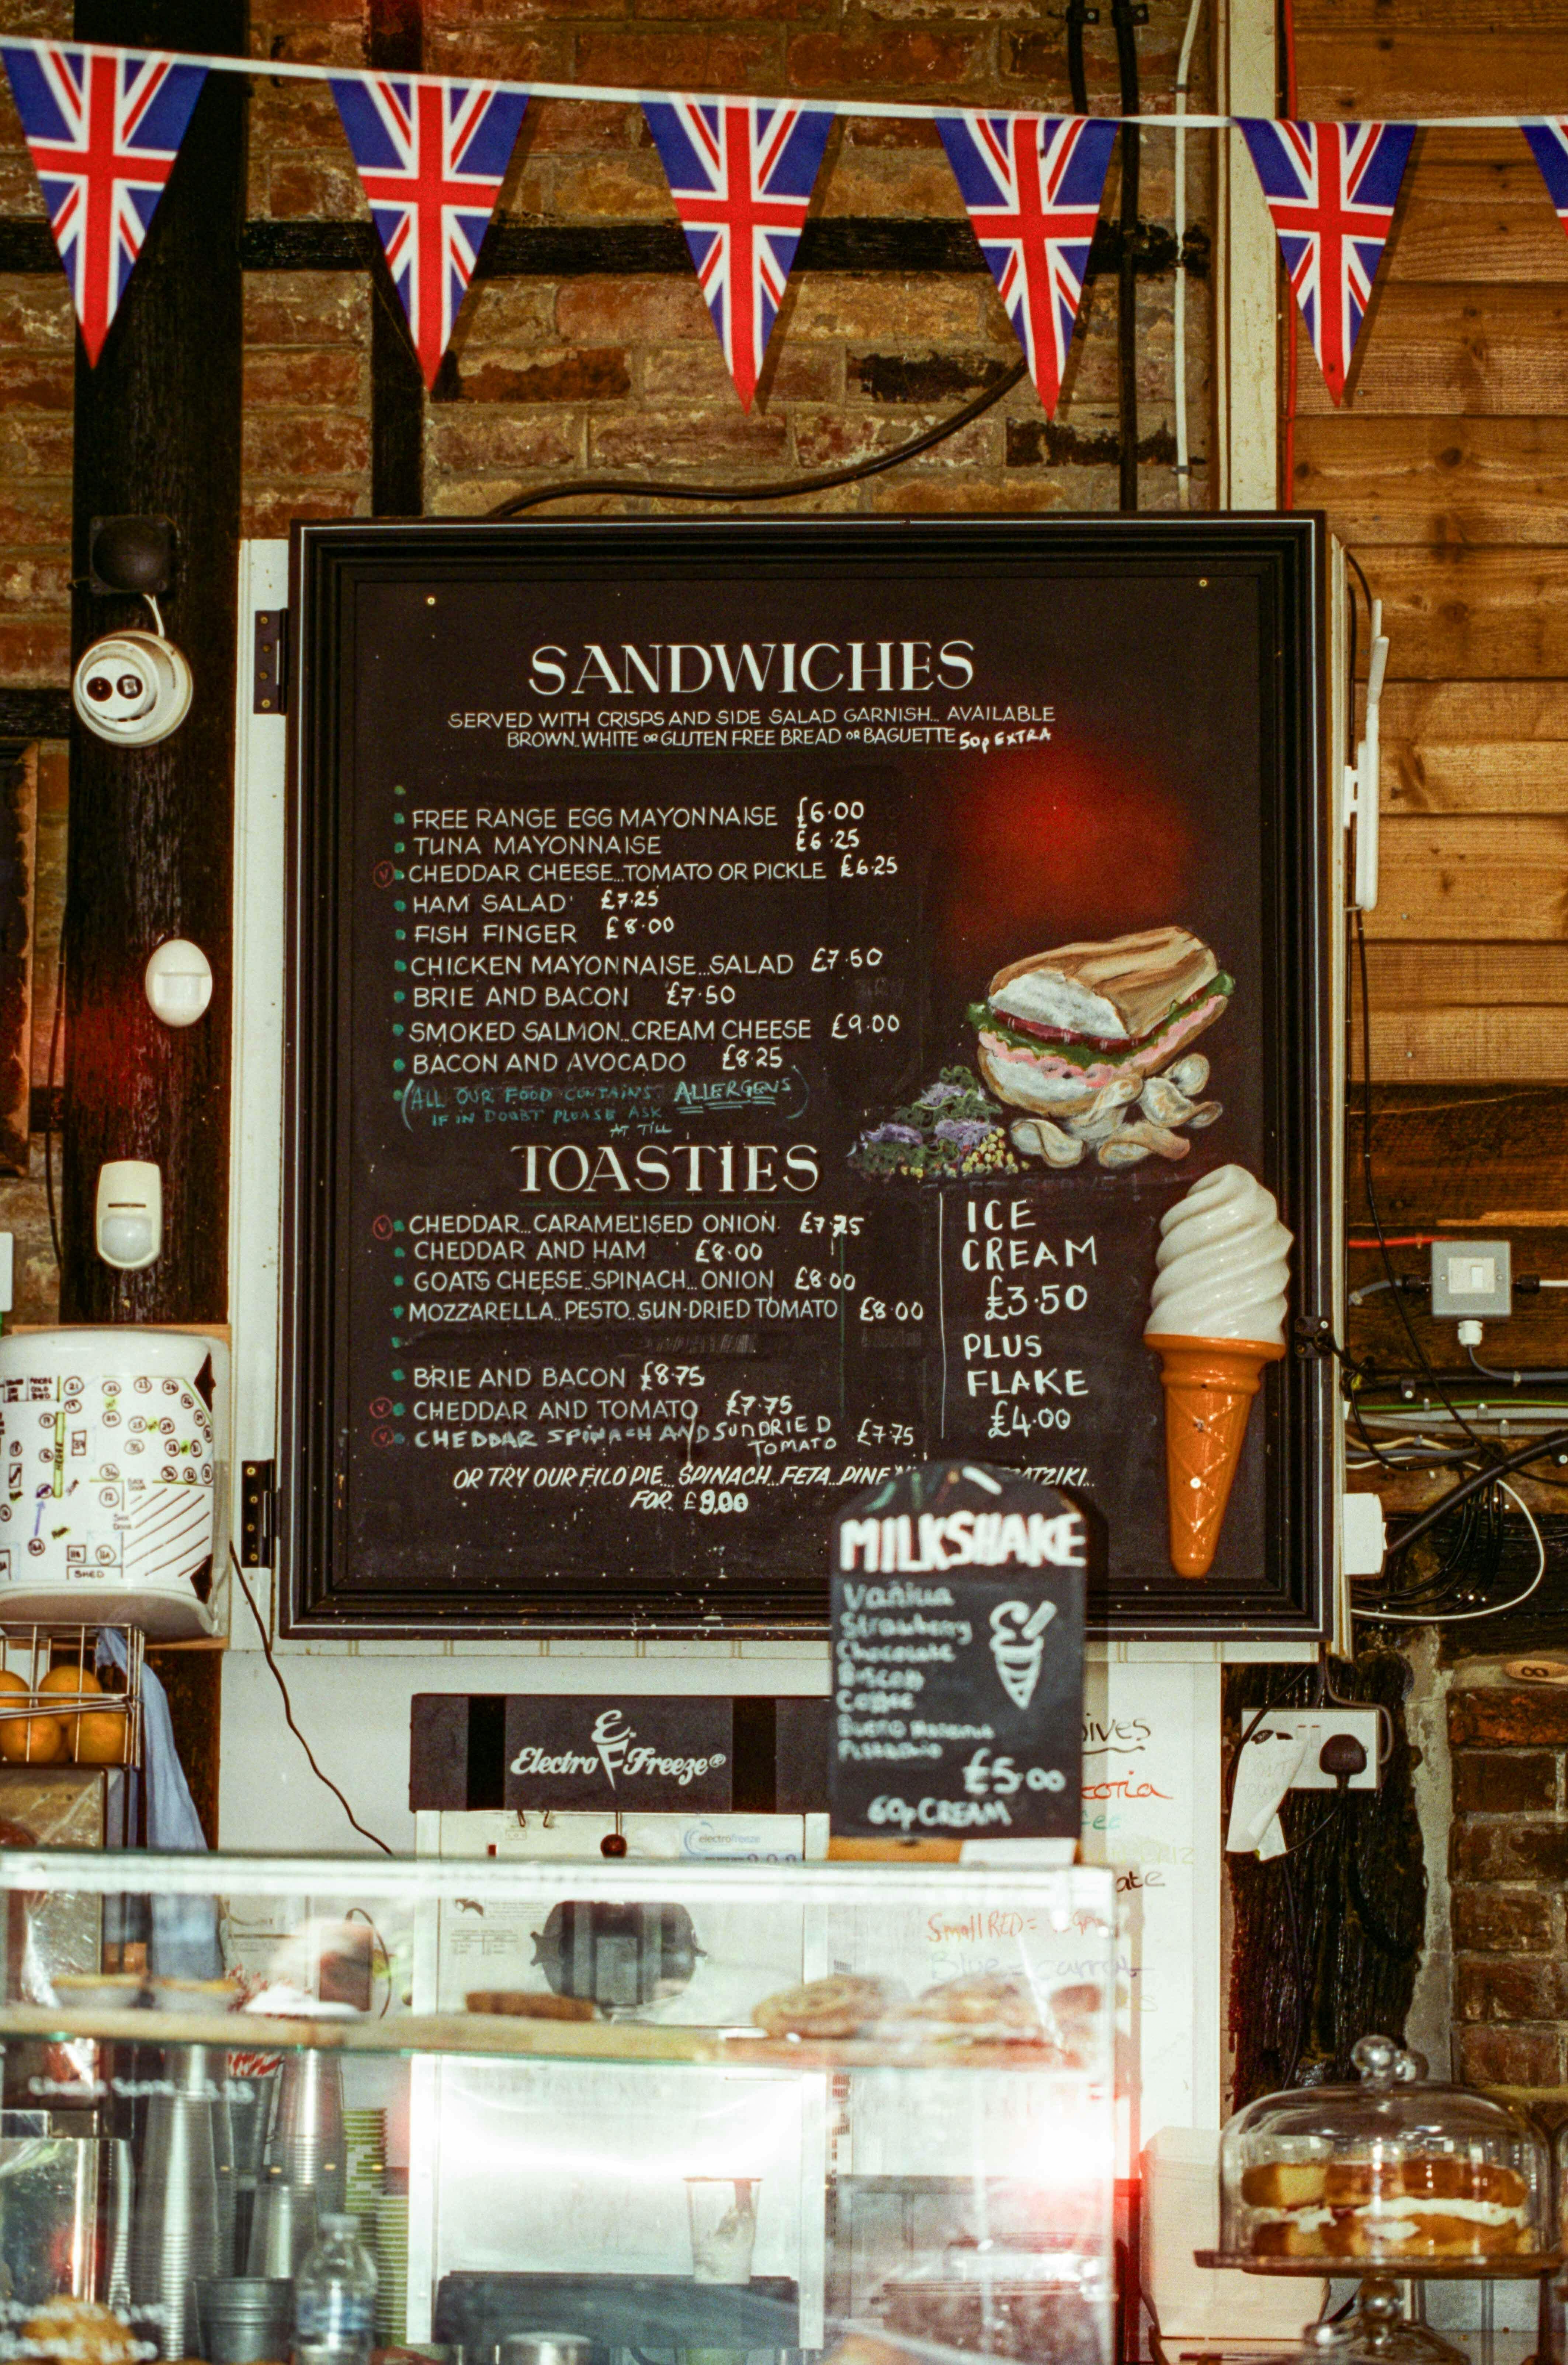 SANDWICHES
SERVED WITH CRISPS AND SIDE SALAD GARNISH... AVAILABLE
BROWN..WHITE OR GLUTEN FREE BREAD OR BAGUETTE 50p EXTRA
FREE RANGE EGG MAYONNAISE £6.00
TUNA MAYONNAISE £6.25
V CHEDDAR CHEESE...TOMATO OR PICKLE £6.25
HAM SALAD £7.25
FISH FINGER £8.00
CHICKEN MAYONNAISE...SALAD £7.50
BRIE AND BACON £7.50
SMOKED SALMON...CREAM CHEESE £9.00
BACON AND AVOCADO £8.25
(ALL OUR FOOD CONTAINS ALLERGENS
IF IN DOUBT PLEASE ASK
AT TILL)
TOASTIES
V CHEDDAR...CARAMELISED ONION £7.75
CHEDDAR AND HAM £8.00
GOATS CHEESE..SPINACH...ONION £8.00
MOZZARELLA..PESTO..SUN-DRIED TOMATO £8.00
BRIE AND BACON £8.75
V CHEDDAR AND TOMATO £7.75
V CHEDDAR SPINACH AND SUNDRIED
TOMATO £7.75
OR TRY OUR FILO PIE...SPINACH...FETA...PINE
FOR £9.00
ICE
CREAM
£3.50
PLUS
FLAKE
£4.00
MILKSHAKE
Vanilla
Strawberry
Chocolate
Biscoff
Coffee
Bueno
Pistachio
£5.00
60p CREAM
Electro Freeze®
electrofreeze
Small RED=
Blue = carrot
SHED